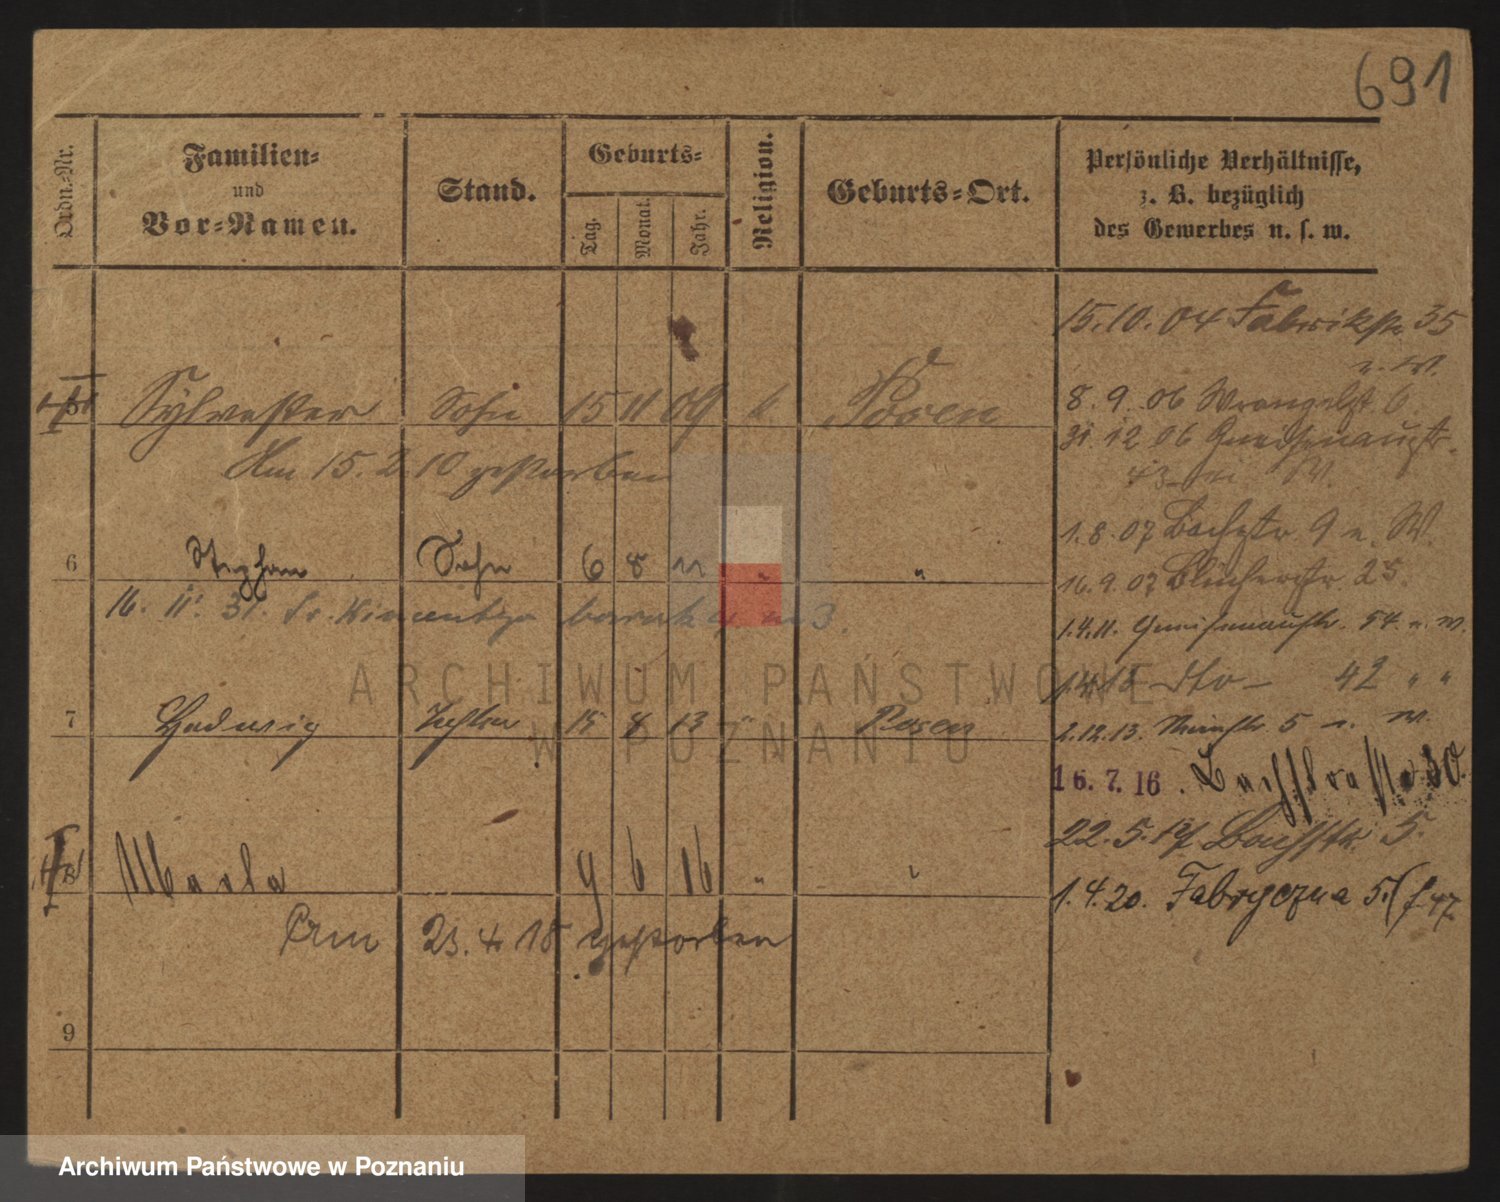 691
Ordn.-Nr.
Familien-
und
Vor-Namen.
Stand.
Geburts-
Tag.
Monat.
Jahr.
Religion.
Geburts-Ort.
Persönliche Verhältnisse,
z. B. bezüglich
des Gewerbes u. s. w.
15.10.04 Fabrikstr. 35
n. W.
5 Sylvester Sohn 15 11 09 k Posen
8.9.06 Wrangelst 6
31.12 06 Gneisenaustr.
43 W.
Am 15.2.10 gestorben
1.8.07 Bachstr. 9 n. W.
6 Stephan Sohn 6 8 11 " "
16.9.07 Blücherstr. 25.
16. 11. 31. baraki 3.
1.4.11. Gneisenaustr. 54. n. W.
dto – 42 " "
7 Hedwig Tochter 15 8 13 " Posen
2.12.13. 5 n. W.
16.7.16. Bachstraße 30.
22.5.17 Bachstr. 5.
8 Maria 9 6 16 " "
1.4.20. Fabryczna 5.
Am 23.4.18 gestorben
9
ARCHIWUM PAŃSTWOWE
W POZNANIU
Archiwum Państwowe w Poznaniu